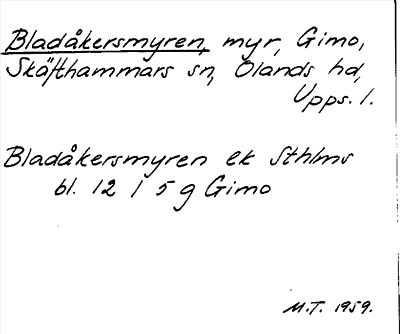 Bladåkersmyren, myr, Gimo,
Skäfthammars sn, Olands hd,
Upps. l.
Bladåkersmyren ek Sthlms
bl. 12 I 5 g Gimo
M.T. 1959.